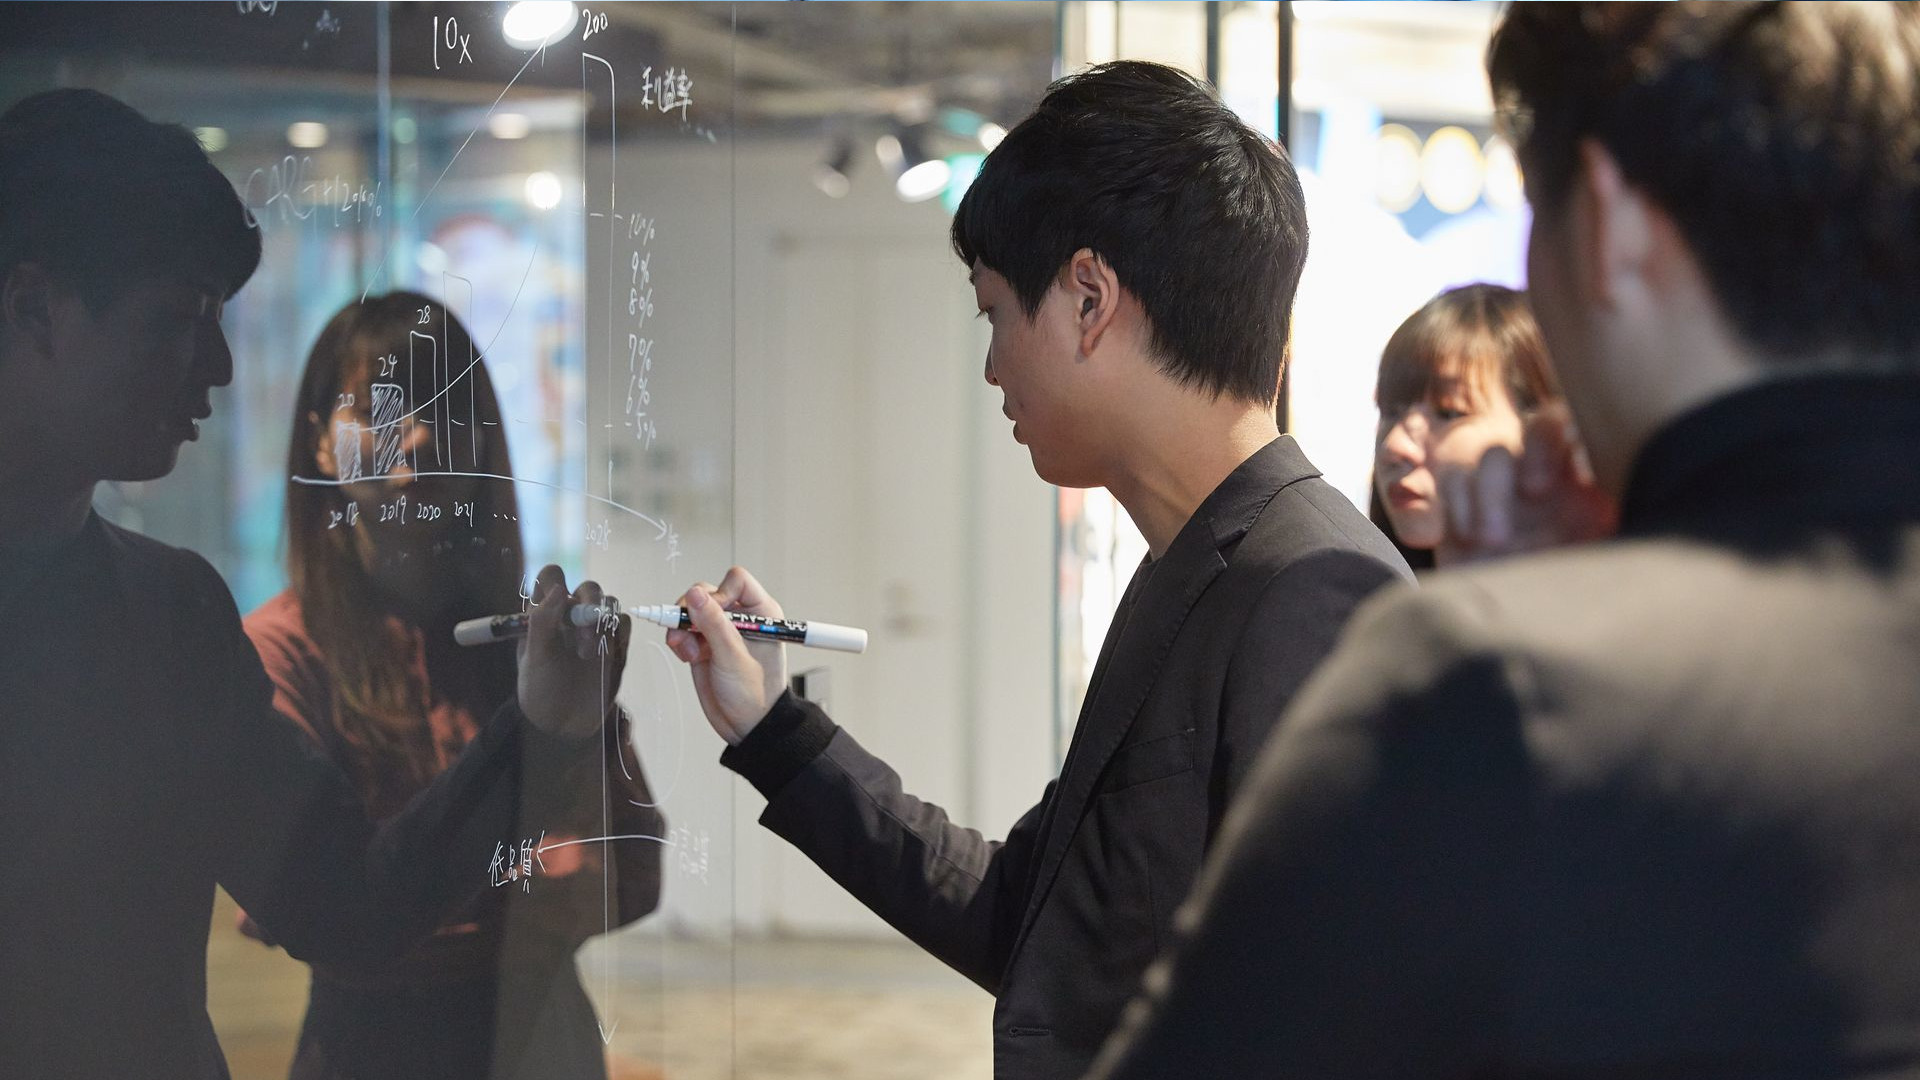 10x
200
利益率
10%
9%
8%
7%
6%
5%
28
24
20
2018 2019 2020 2021 ....
2028
年
低品質